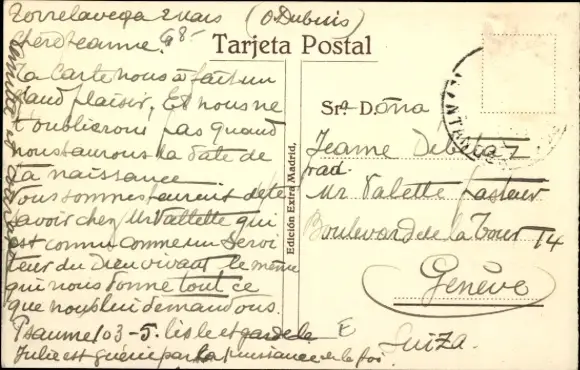 Torrelavega 2 Mars (O. Dubuis)
Chère Jeanne. 68-
Ta Carte nous a fait un
grand plaisir, Et nous ne
t'oublierons pas quand
nous taurons la date de
ta naissance
Vous sommes heureux de te
savoir chez Mr Vallette qui
est connu comme un Servi
teur du Dieu vivant le même
qui nous donne tout ce
que nous lui demandons.
Psaume 103-5. lis le et garde le
Julie est guérie par la puissance de la foi
Tarjeta Postal
Sra Dona
Jeanne
Mr Valette Pasteur
Boulevard de la Tour 14
Genève
Suiza.
Edición Extra Madrid,